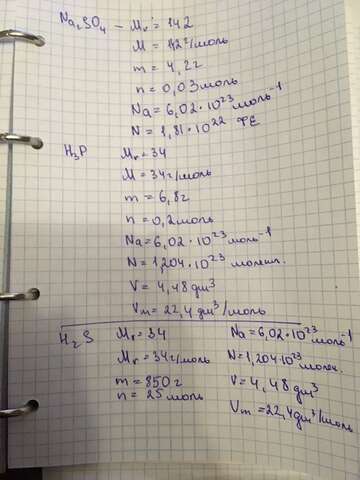 Na₂SO₄ – Mr = 142
M = 142 г/моль
m = 4,2г
n = 0,03 моль
Na = 6,02 · 10²³ моль⁻¹
N = 1,81 · 10²² ФЕ
H₃P Mr = 34
M = 34г/моль
m = 6,8г
n = 0,2 моль
Na = 6,02 · 10²³ моль⁻¹
N = 1,204 · 10²³ молекл.
V = 4,48 дм³
Vm = 22,4 дм³/моль
H₂S Mr = 34
Mr = 34г/моль
m = 850 г
n = 25 моль
Na = 6,02 · 10²³ моль⁻¹
N = 1,204 · 10²³ молек.
V = 4,48 дм³
Vm = 22,4 дм³/моль